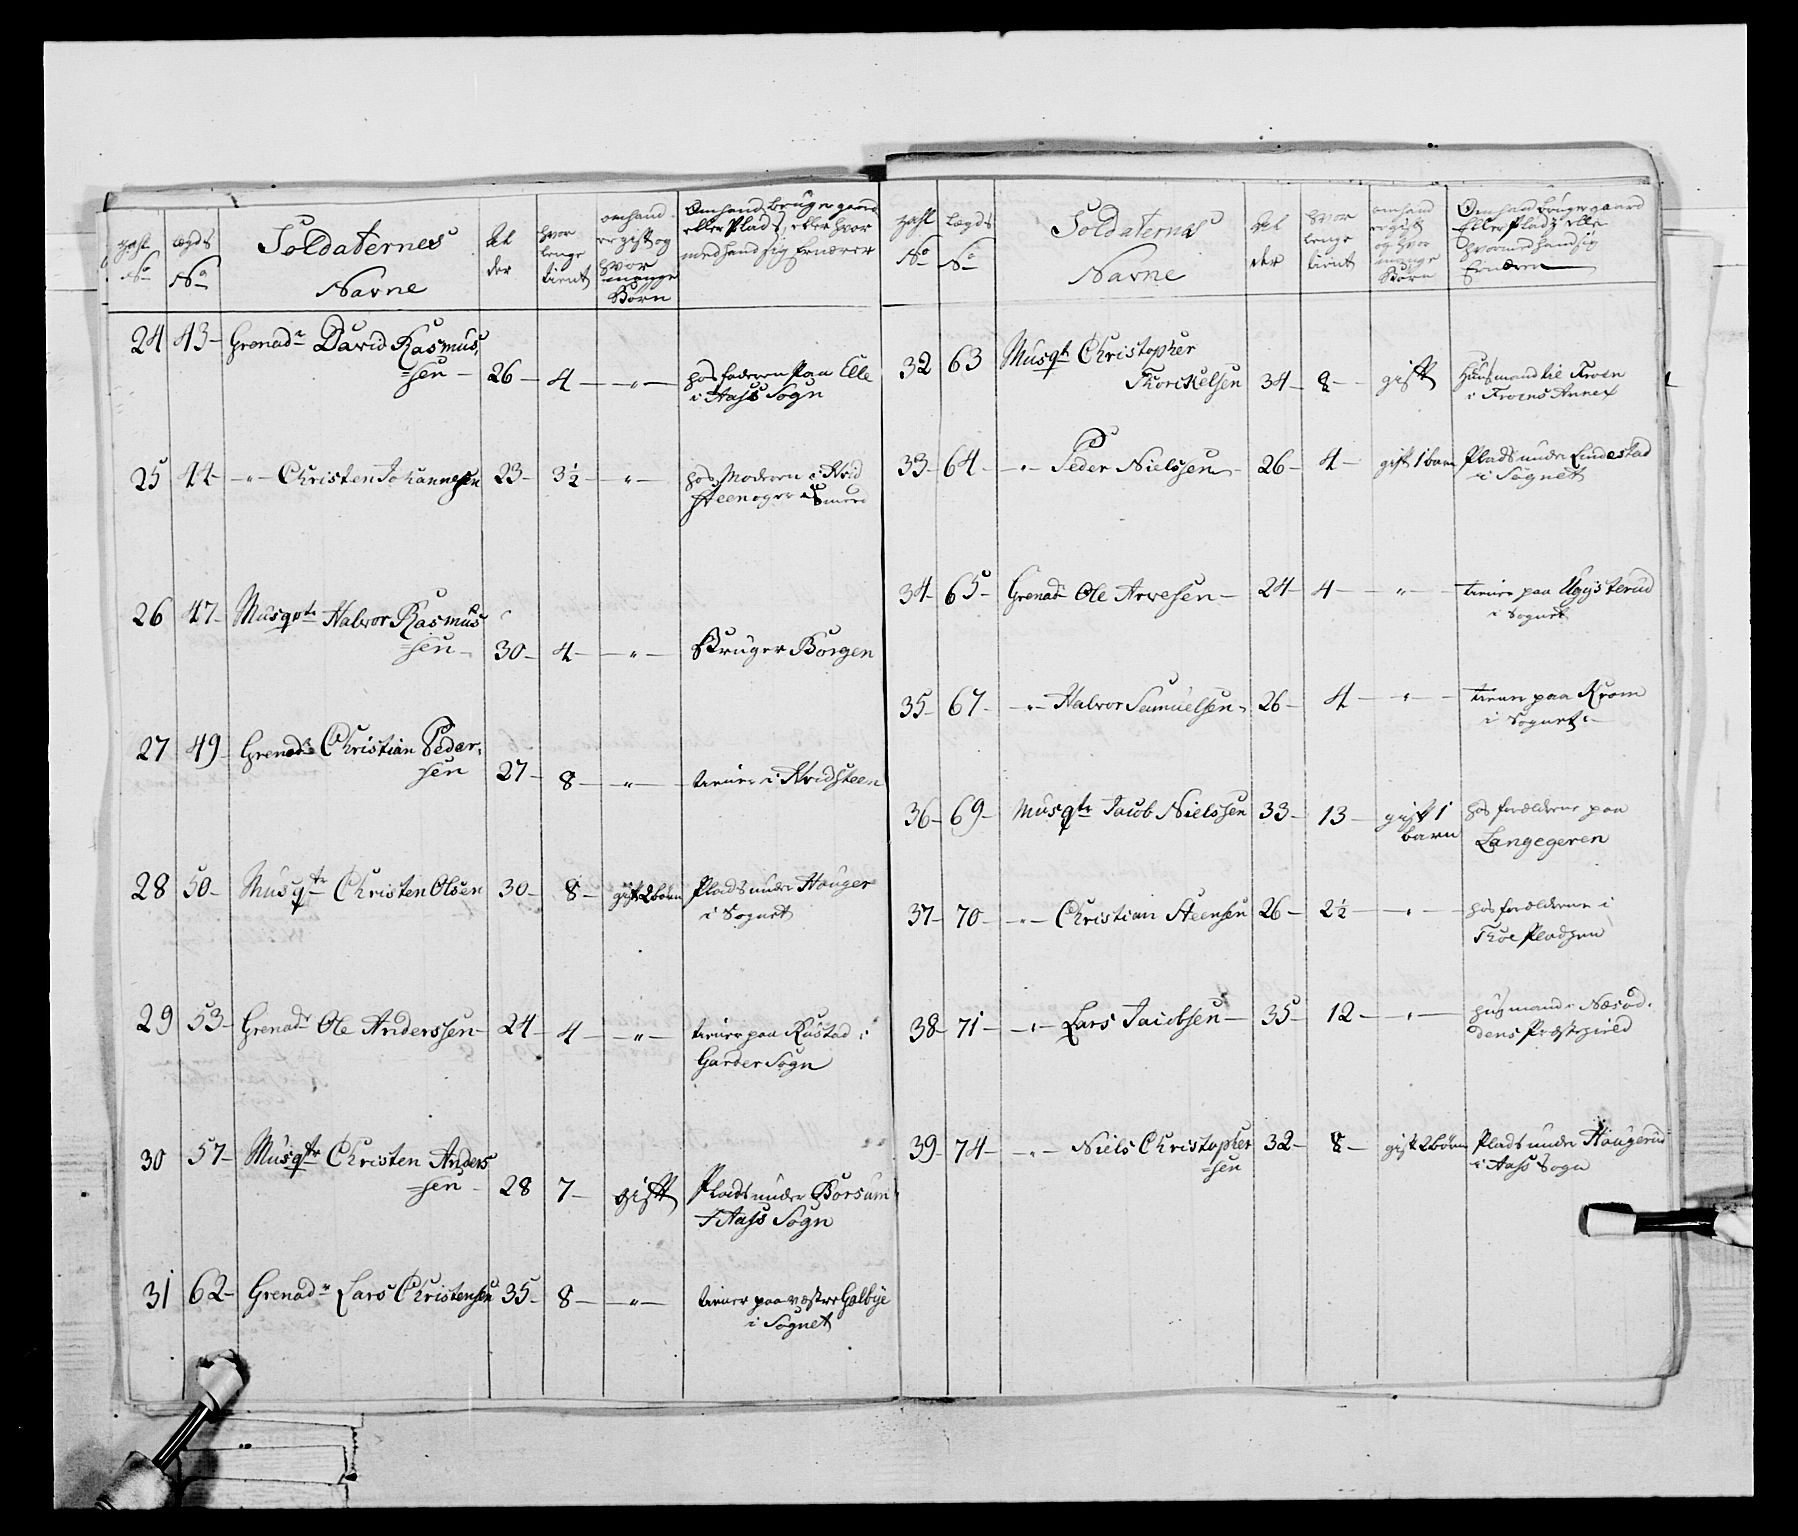 Zahl No
Lægds No
Soldaternes Navne
Alder
hvor lenge tient
om hand er gift og hvor mange Børn
Om hand bruger gaard eller Plads, eller hvor med hand sig Ernærer
24 43 Grenadr David Rasmus=
sen 26 4 " hos faderen Paa Elle
i Aass Sogn
25 44 " Christen Johannesen 23 3½ " hos Moderen i Hvid
steen
26 47 Musqtr Halvor Rasmus
=sen 30 4 " Bruger Borgen
27 49 Grenadr Christian Peder=
sen 27 8 " tiener i Hvidsteen
28 50 Musqtr Christen Olsen 30 8 gift 2 børn Plads under Houger
i Sognet
29 53 Grenadr Ole Anderssen 24 4 " tiener paa Rustad i
Garder Sogn
30 57 Musqtr Christen Anders
=sen 28 7 gift Plads under Korsum
i Aass Sogn
31 62 Grenadr Lars Christensen 35 8 " tiener paa væstre Galbye
i Sognet
Zahl No
Lægds No
Soldaternes Navne
Alder
hvor lenge tient
om hand er gift og hvor mange Børn
Om hand bruger gaard Eller Plads eller hvor med hand sig Ernærer
32 63 Musqt Christopher
Thorkelsen 34 8 gift Huusmand til Froen
i Froens Annex
33 64 " Peder Nielssen 26 4 gift 1 barn Plads under Lindestad
i Sognet
34 65 Grenadr Ole Arvesen 24 4 " tiener paa Uggisterud
i Sognet
35 67 " Halvor Samuelsen 26 4 " tiener paa Krom
i Sognet
36 69 Musqtr Jacob Nielssen 33 13 gift 1
barn hos forældrene paa
Langegeren
37 70 " Christian Steensen 26 2½ " hos forældrene i
Thoe Pladsen
38 71 " Lars Jacobsen 35 12 " husmand i Næsod=
dens Præstegield
39 74 " Niels Christopher
=sen 32 8 gift 2 børn Plads under Hougerud
i Aass Sogn